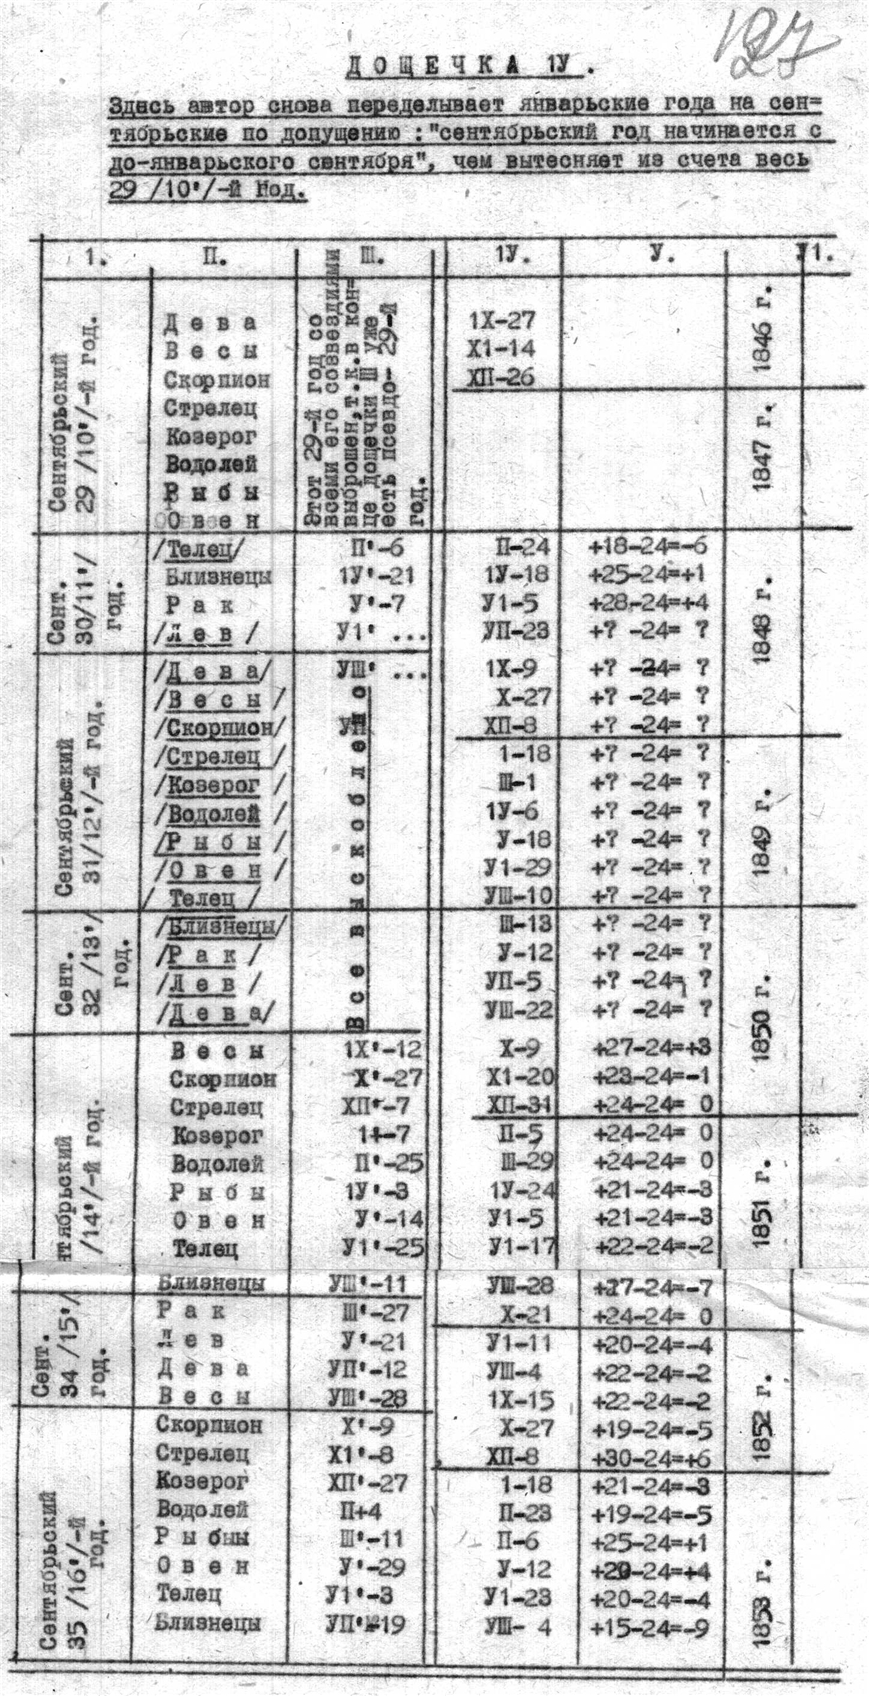 127
ДОЩЕЧКА 1У.
Здесь автор снова переделывает январьские года на сен=
тябрьские по допущению :"сентябрьский год начинается с
до-январьского сентября", чем вытесняет из счета весь
29 /10'/-й Год.
1. П. Ш. 1У. У. У1.
Сентябрьский
29 /10'/-й год.
Этот 29-й год со
всеми его созвездиями
выброшен,т.к.в кон=
це дощечки Ш уже
есть псевдо- 29-й
год.
1846 г.
Дева 1Х-27
Весы Х1-14
Скорпион ХП-26
1847 г.
Стрелец
Козерог
Водолей
Рыбы
Овен
Сент.
30/11'/
год.
1848 г.
/Телец/ П'-6 П-24 +18-24=-6
Близнецы 1У'-21 1У-18 +25-24=+1
Рак У'-7 У1-5 +28-24=+4
/Лев/ У1' ... УП-23 +? -24= ?
Сентябрьский
31/12'/-й год.
Все выскоблено
/Дева/ УШ' ... 1Х-9 +? -24= ?
/Весы/ Х-27 +? -24= ?
/Скорпион/ ХП-8 +? -24= ?
1849 г.
/Стрелец/ 1-18 +? -24= ?
/Козерог/ Ш-1 +? -24= ?
/Водолей/ 1У-6 +? -24= ?
/Рыбы/ У-18 +? -24= ?
/Овен/ У1-29 +? -24= ?
/Телец/ УШ-10 +? -24= ?
Сент.
32 /13'/
год.
1850 г.
/Близнецы/ Ш-13 +? -24= ?
/Рак/ У-12 +? -24= ?
/Лев/ УП-5 +? -24= ?
/Дева/ УШ-22 +? -24= ?
нтябрьский
/14'/-й год.
Весы 1Х'-12 Х-9 +27-24=+3
Скорпион Х'-27 Х1-20 +23-24=-1
Стрелец ХП'-7 ХП-31 +24-24= 0
1851 г.
Козерог 1+-7 П-5 +24-24= 0
Водолей П'-25 Ш-29 +24-24= 0
Рыбы 1У'-3 1У-24 +21-24=-3
Овен У'-14 У1-5 +21-24=-3
Телец У1'-25 У1-17 +22-24=-2
Близнецы УШ'-11 УШ-28 +17-24=-7
Сент.
34 /15'/
год.
Рак Ш'-27 Х-21 +24-24= 0
1852 г.
Лев У'-21 У1-11 +20-24=-4
Дева УП'-12 УШ-4 +22-24=-2
Весы УШ'-28 1Х-15 +22-24=-2
Сентябрьский
35 /16'/-й
год.
Скорпион Х'-9 Х-27 +19-24=-5
Стрелец Х1'-8 ХП-8 +30-24=+6
1853 г.
Козерог ХП'-27 1-18 +21-24=-3
Водолей П+4 П-23 +19-24=-5
Рыбыы Ш'-11 П-6 +25-24=+1
Овен У'-29 У-12 +20-24=+4
Телец У1'-3 У1-23 +20-24=-4
Близнецы УП'-19 УШ- 4 +15-24=-9